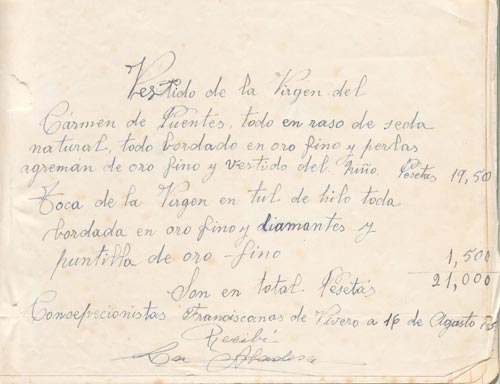 Vestido de la Virgen del
Cármen de Puentes, todo en raso de seda
natural, todo bordado en oro fino y perlas
agremán de oro fino y vestido del Niño, Pesetas 19,500
Toca de la Virgen en tul de hilo toda
bordada en oro fino y diamantes y
puntilla de oro-fino 1,500
Son en total Pesetas 21,000
Consepcionistas Franciscanas de Vivero a 16 de Agosto
Recibí
La Abadesa